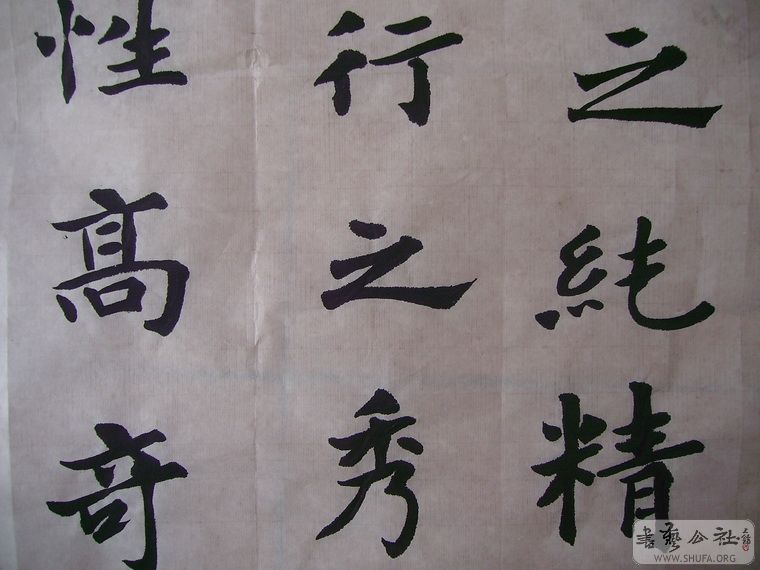 之純精
行之秀
性高奇
書藝公社
WWW.SHUFA.ORG